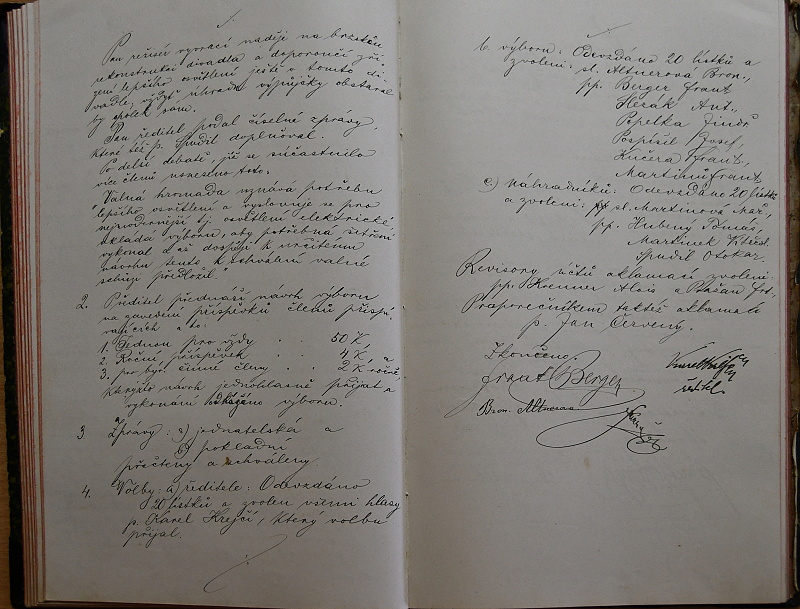 Pan režisér vyvrací naději na brzkou
rekonstrukci divadla a doporoučí zří-
zení lepšího osvětlení ještě v tomto di-
vadle, úhradu výpůjčky obstaral
by spolek sám.
Pan ředitel podal číselné zprávy,
které též p. Spudil doplňoval.
Po delší debatě, jíž se súčastnilo
více členů usneseno toto:
"Valná hromada uznává potřebu
lepšího osvětlení a vyslovuje se pro
nejmodernější tj. osvětlení elektrické,
ukládá výboru, aby potřebná šetření
vykonal a až dospěje k určitému
návrhu tento k schválení valné
schůzi předložil."
2. Ředitel přednáší návrh výboru
na zavedení příspěvků členů přispí-
vajících a to:
1. Jednou pro vždy . . 50 K,
2. Roční příspěvek . . 4 K, a
3. pro být. činné členy . . 2 K ročně,
kterýžto návrh jednohlasně přijat a
vykonání výboru.
3. Zprávy: a) jednatelská a
b) pokladní
přečteny a schváleny.
4. Volby: a) ředitele: Odevzdáno
20 lístků a zvolen všemi hlasy
p. Karel Krejčí, který volbu
přijal.
b. výboru: Odevzdáno 20 lístků a
zvoleni: sl. Altnerová Bron.,
pp. Berger Frant
Herák Ant.,
Popelka Jindř.
Pospíšil Josef,
Kučera Frant,
Martinů Frant
c) náhradníků: Odevzdáno 20 lístků
a zvoleni: sl. Martinová Mař.,
pp. Hubený Tomáš,
Martinek
Spudil Otokar.
Revisory účtů aklamací zvoleni:
pp. Krenner Alois a Bažan Frt.,
Praporečníkem taktéž aklamací
p. Jan Červený.
Skončeno.
Frant Berger
ředitel
Bron. Altnerová